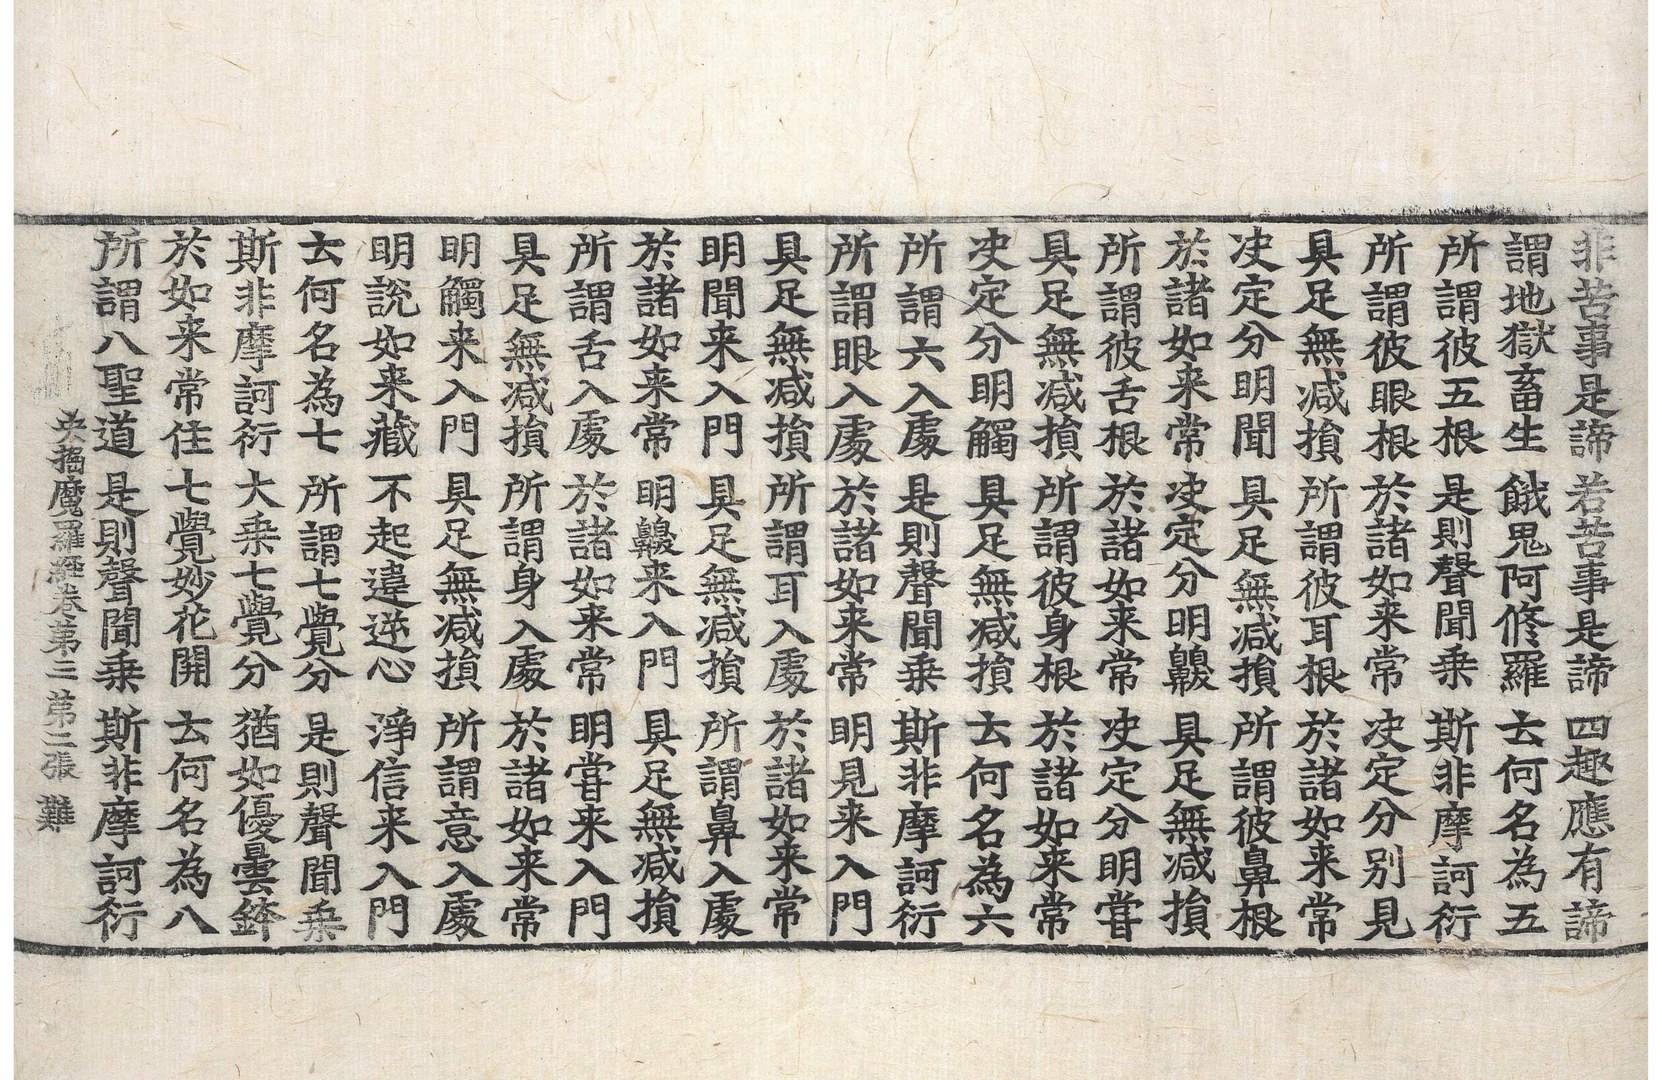 非苦事是諦 若苦事是諦 四趣應有諦
謂地獄畜生 餓鬼阿修羅 云何名為五
所謂彼五根 是則聲聞乗 斯非摩訶衍
所謂彼眼根 於諸如来常 决定分別見
具足無减損 所謂彼耳根 於諸如来常
决定分明聞 具足無减損 所謂彼鼻根
於諸如来常 决定分明齅 具足無减損
所謂彼舌根 於諸如来常 决定分明甞
具足無减損 所謂彼身根 於諸如来常
决定分明觸 具足無减損 云何名為六
所謂六入處 是則聲聞乗 斯非摩訶衍
所謂眼入處 於諸如来常 明見来入門
具足無减損 所謂耳入處 於諸如来常
明聞来入門 具足無减損 所謂鼻入處
於諸如来常 明齅来入門 具足無减損
所謂舌入處 於諸如来常 明甞来入門
具足無减損 所謂身入處 於諸如来常
明觸来入門 具足無减損 所謂意入處
明說如来藏 不起違逆心 淨信来入門
云何名為七 所謂七覺分 是則聲聞乗
斯非摩訶衍 大乗七覺分 猶如優曇鉢
於如来常住 七覺妙花開 云何名為八
所謂八聖道 是則聲聞乗 斯非摩訶衍
央掘魔羅經卷第三 第二張 難